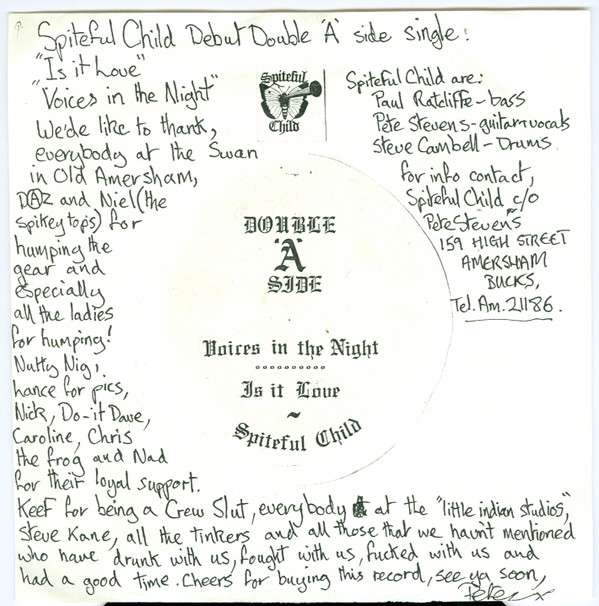 Spiteful Child Debut Double 'A' side single:
"Is it Love"
"Voices in the Night"
We'de like to thank,
everybody at the Swan
in Old Amersham,
DAZ and Niel (the
spikeytops) for
humping the
gear and
especially
all the ladies
for humping!
Nutty Nig,
hance for pics,
Nick, Do-it Dave,
Caroline, Chris
the frog and Nad
for their loyal support.
Keef for being a Crew Slut, everybody at the "little indian studios",
Steve Kane, all the tinkers and all those that we havn't mentioned
who have drunk with us, fought with us, fucked with us and
had a good time. Cheers for buying this record, see ya soon,
Pete x
Spiteful
Child
Spiteful Child are:
Paul Ratcliffe - bass
Pete Stevens - guitar+vocals
Steve Cambell - Drums.
for info contact,
Spiteful Child c/o
Pete Stevens
159 HIGH STREET
AMERSHAM
BUCKS,
Tel. Am. 21186.
DOUBLE
'A'
SIDE
Voices in the Night
Is it Love
~
Spiteful Child